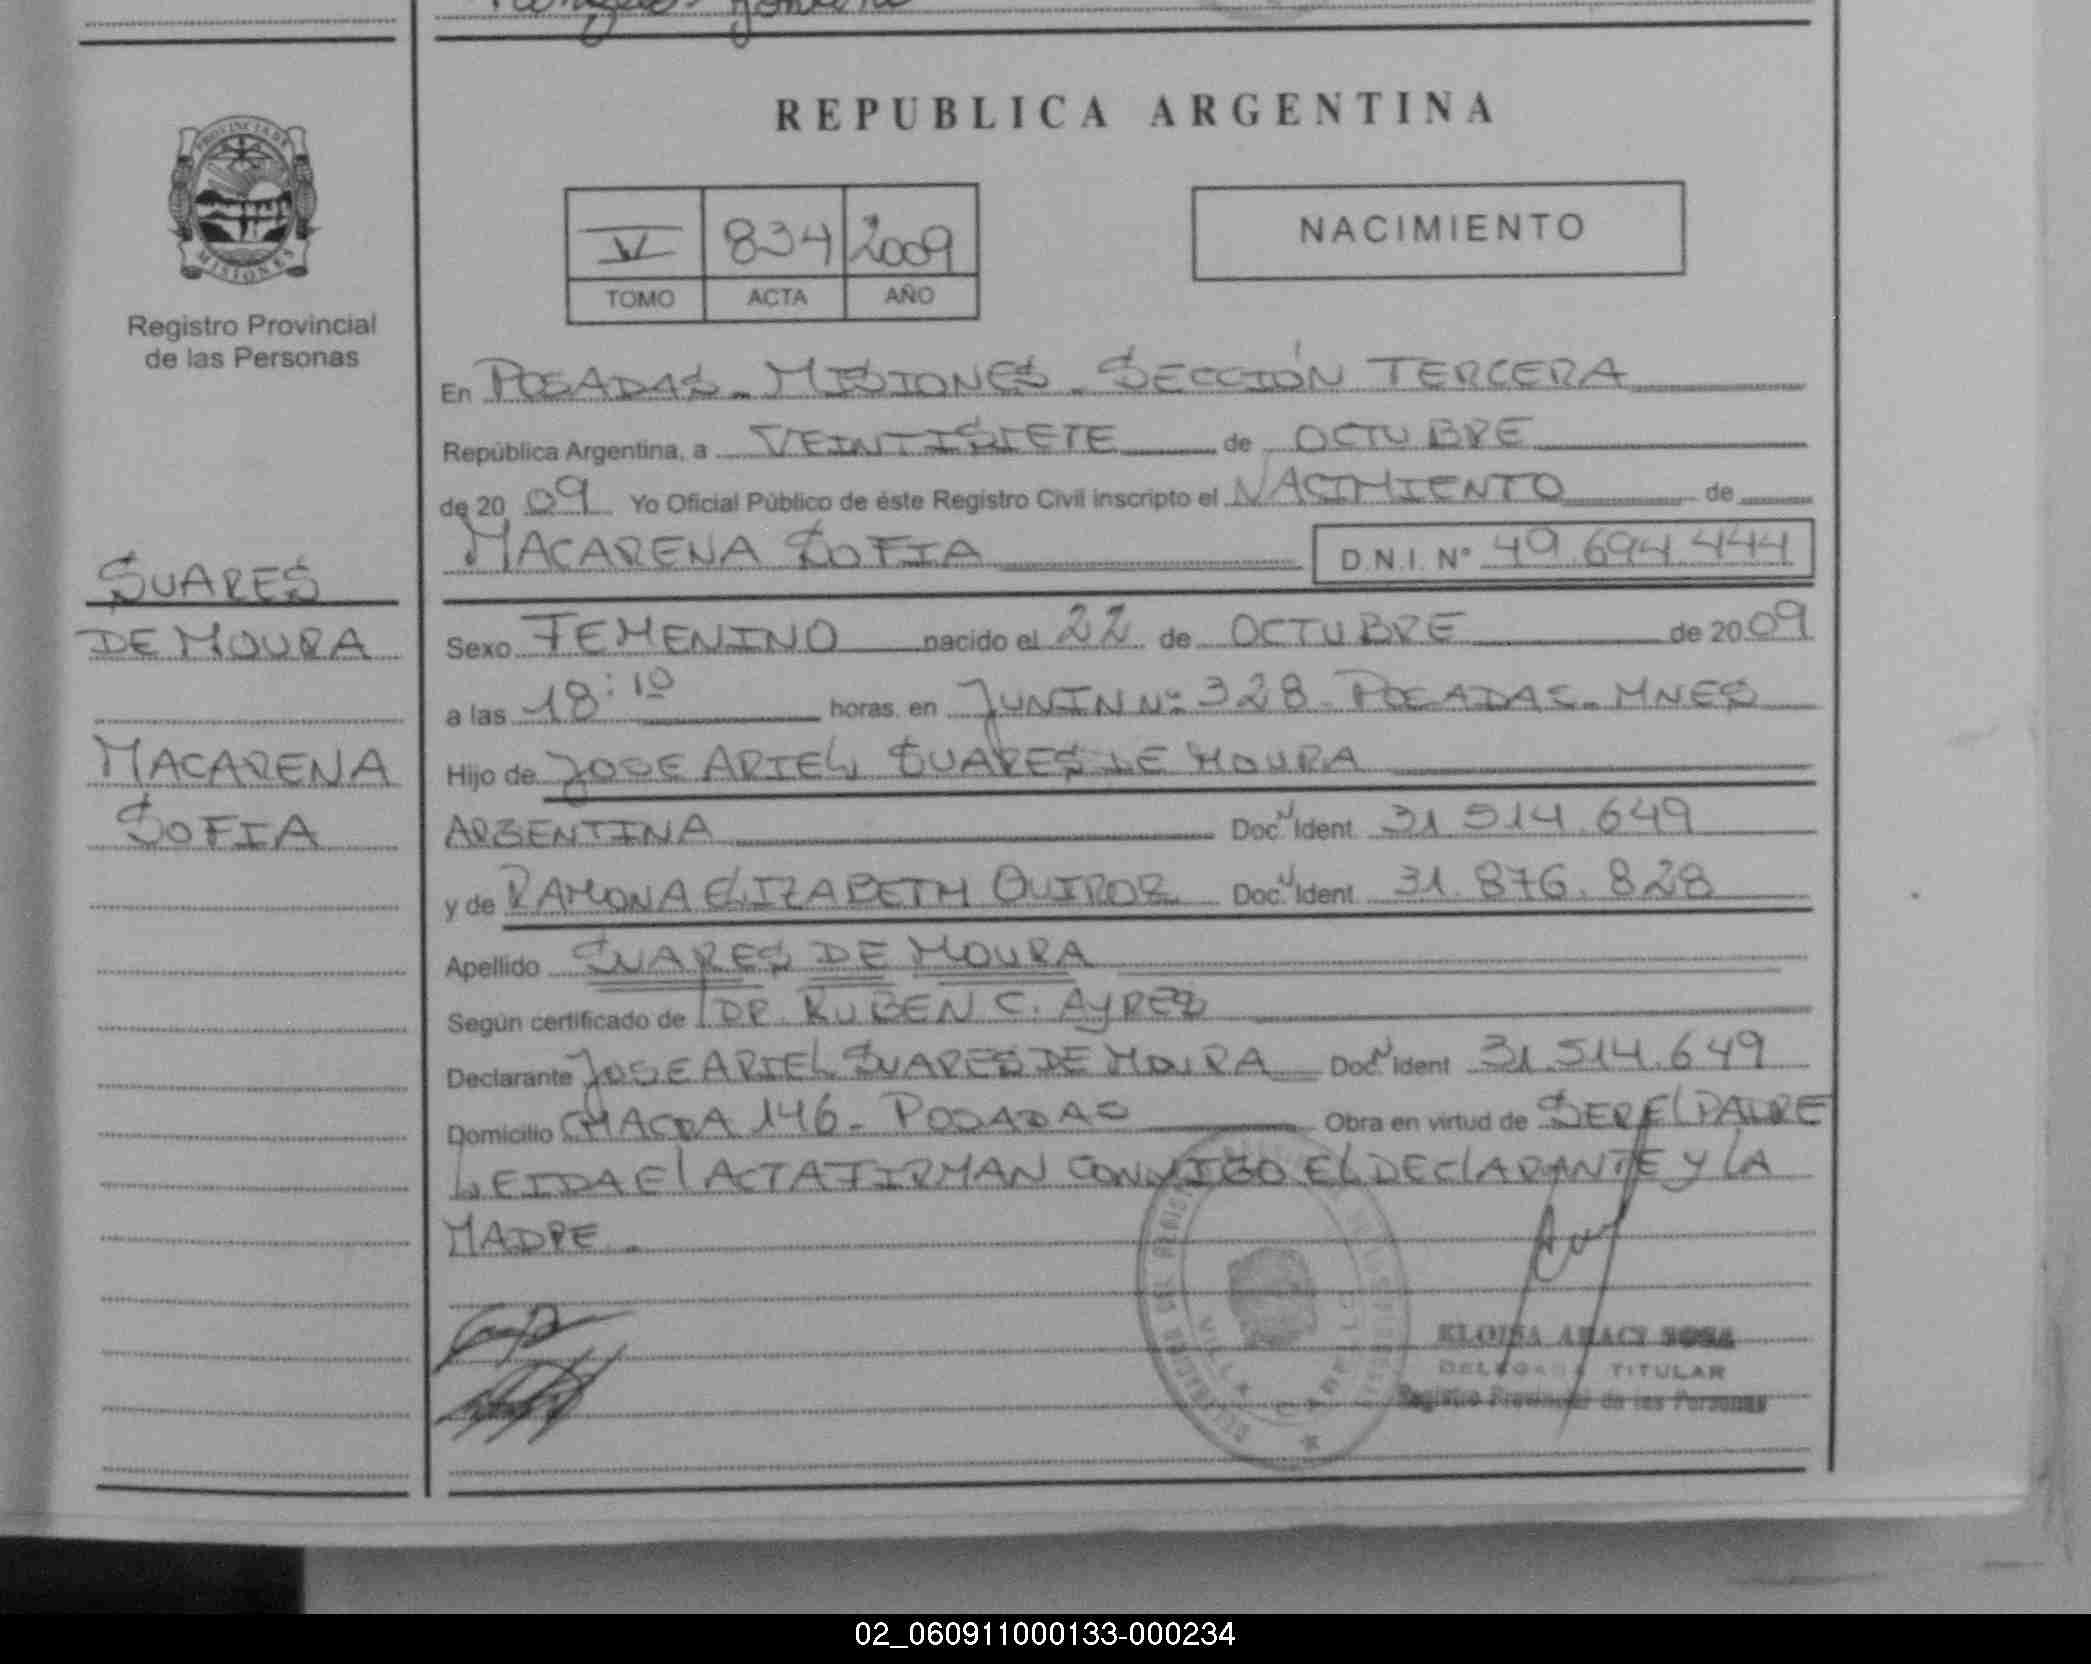 REPUBLICA ARGENTINA
PROVINCIA DE
MISIONES
Registro Provincial
de las Personas
V 834 2009
TOMO ACTA AÑO
NACIMIENTO
En POSADAS - MISIONES - SECCIÓN TERCERA
República Argentina, a VEINTISIETE de OCTUBRE
de 20 09 Yo Oficial Público de éste Registro Civil inscripto el NACIMIENTO de
MACARENA SOFIA D.N.I. Nº 49.694.444
SUARES
DE MOURA
MACARENA
SOFIA
Sexo FEMENINO nacido el 22 de OCTUBRE de 20 09
a las 18:10 horas, en JUNIN Nº 328 - POSADAS - MNES
Hijo de JOSE ARIEL SUARES DE MOURA
ARGENTINA Doc. Ident. 31.514.649
y de RAMONA ELIZABETH QUIROZ Doc. Ident. 31.876.828
Apellido SUARES DE MOURA
Según certificado de DR. RUBEN C. AYRES
Declarante JOSE ARIEL SUARES DE MOURA Doc. Ident 31.514.649
Domicilio CHACRA 146 - POSADAS Obra en virtud de SER EL PADRE
LEIDA El ACTA FIRMAN CONMIGO EL DEClARANTE Y LA
MADRE.
VILLA CABELLO
ELOISA ARACI SOSA
DELEGADA TITULAR
Registro Provincial de las Personas
02_060911000133-000234